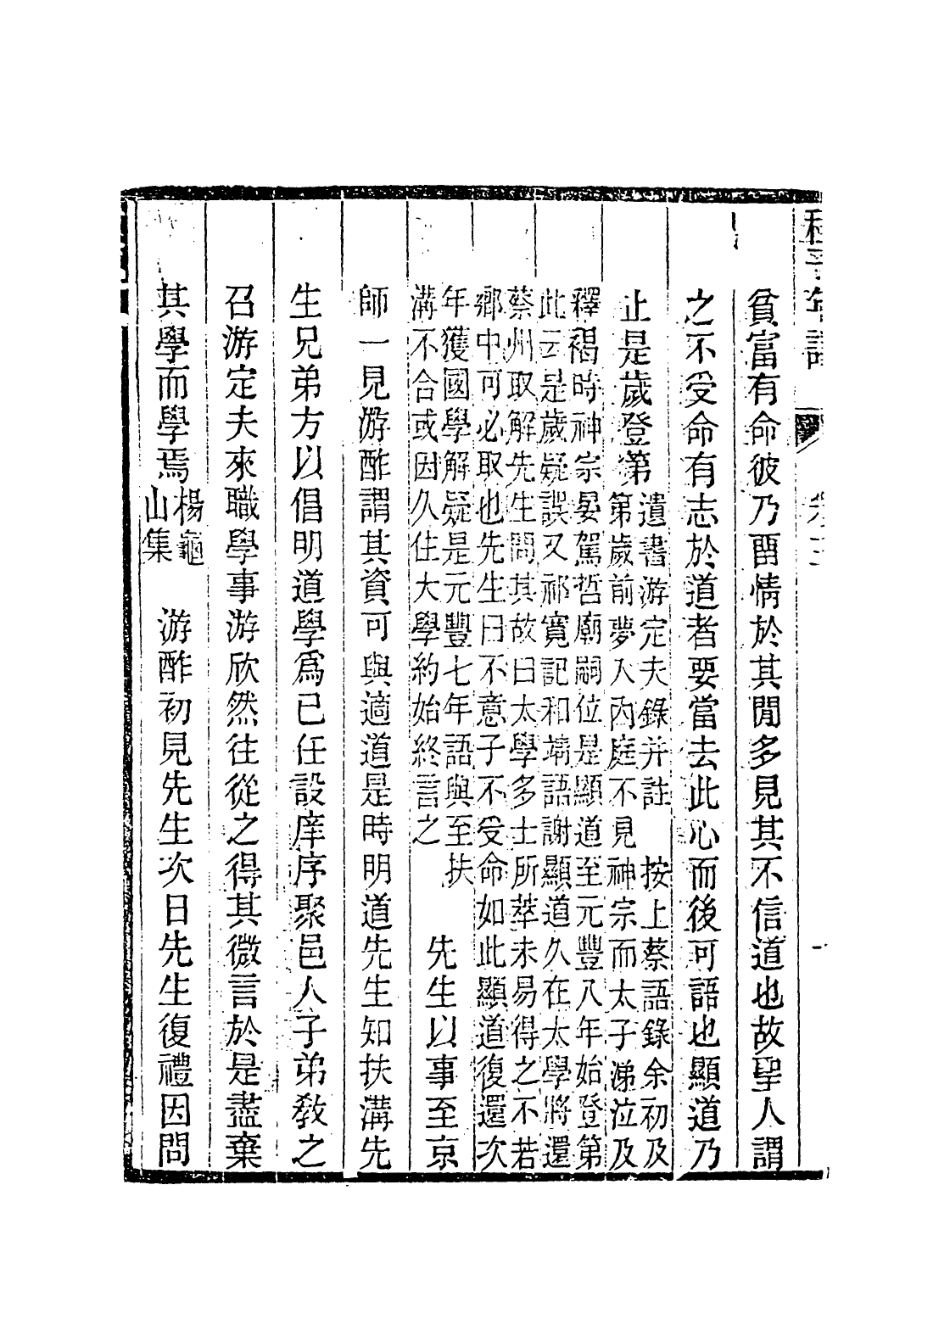 程子年譜 卷三
貧富有命彼乃畱情於其閒多見其不信道也故聖人謂
之不受命有志於道者要當去此心而後可語也顯道乃
止是歲登第
遺書游定夫錄并註　按上蔡語錄余初及
第歲前夢入內庭不見神宗而太子涕泣及
釋褐時神宗晏駕哲廟嗣位是顯道至元豐八年始登第
此云是歲疑誤又祁寬記和靖語謝顯道久在太學將還
蔡州取解先生問其故曰太學多士所萃未易得之不若
鄉中可必取也先生曰不意子不受命如此顯道復還次
年獲國學解疑是元豐七年語與至扶
溝不合或因久住大學約始終言之
先生以事至京
師一見游酢謂其資可與適道是時明道先生知扶溝先
生兄弟方以倡明道學爲已任設庠序聚邑人子弟敎之
召游定夫來職學事游欣然往從之得其微言於是盡棄
其學而學焉
楊龜
山集
游酢初見先生次日先生復禮因問